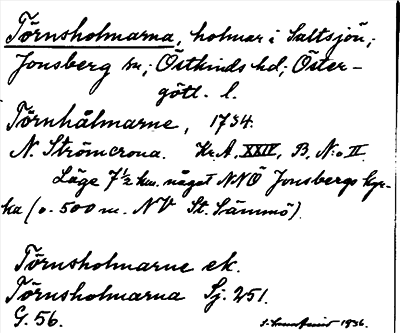 Törnsholmarna, holmar i Saltsjön;
Jonsberg sn; Östkinds hd; Öster-
götl. l.
Törnhålmarne, 1734.
N. Strömcrona. Kr.A, XXIV, B, N:o II.
Läge 7½ km. något NNÖ Jonsbergs kyr-
ka (o. 500 m. NV St. Lämmö).
Törnsholmarne ek.
Törnsholmarna Sj. 251.
G. 56. 1936.